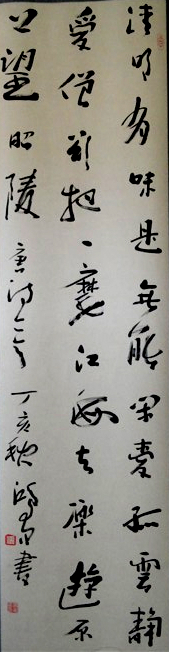 清时有味是无能闲爱孤云静
爱僧欲把一麾江海去乐游原
上望昭陵 唐诗一首 丁亥秋 书